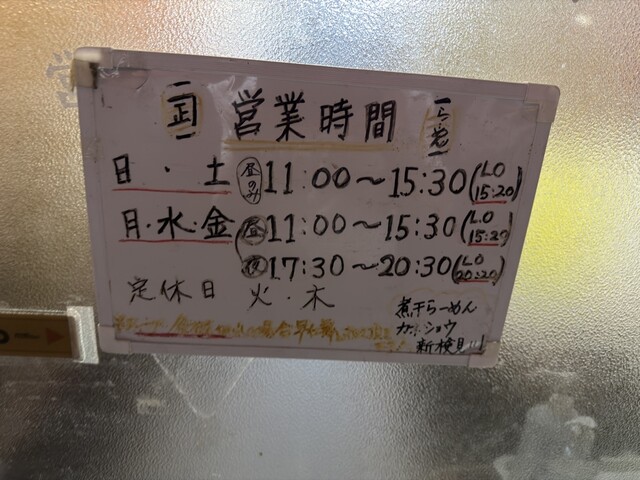 営業時間
日・土 昼のみ 11:00～15:30 (LO 15:20)
月・水・金 昼 11:00～15:30 (L.O 15:20)
夜 17:30～20:30 (LO 20:20)
定休日 火・木
煮干らーめん
カネショウ
新検見川